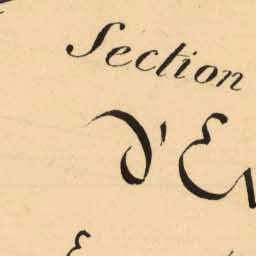 Section
D'E